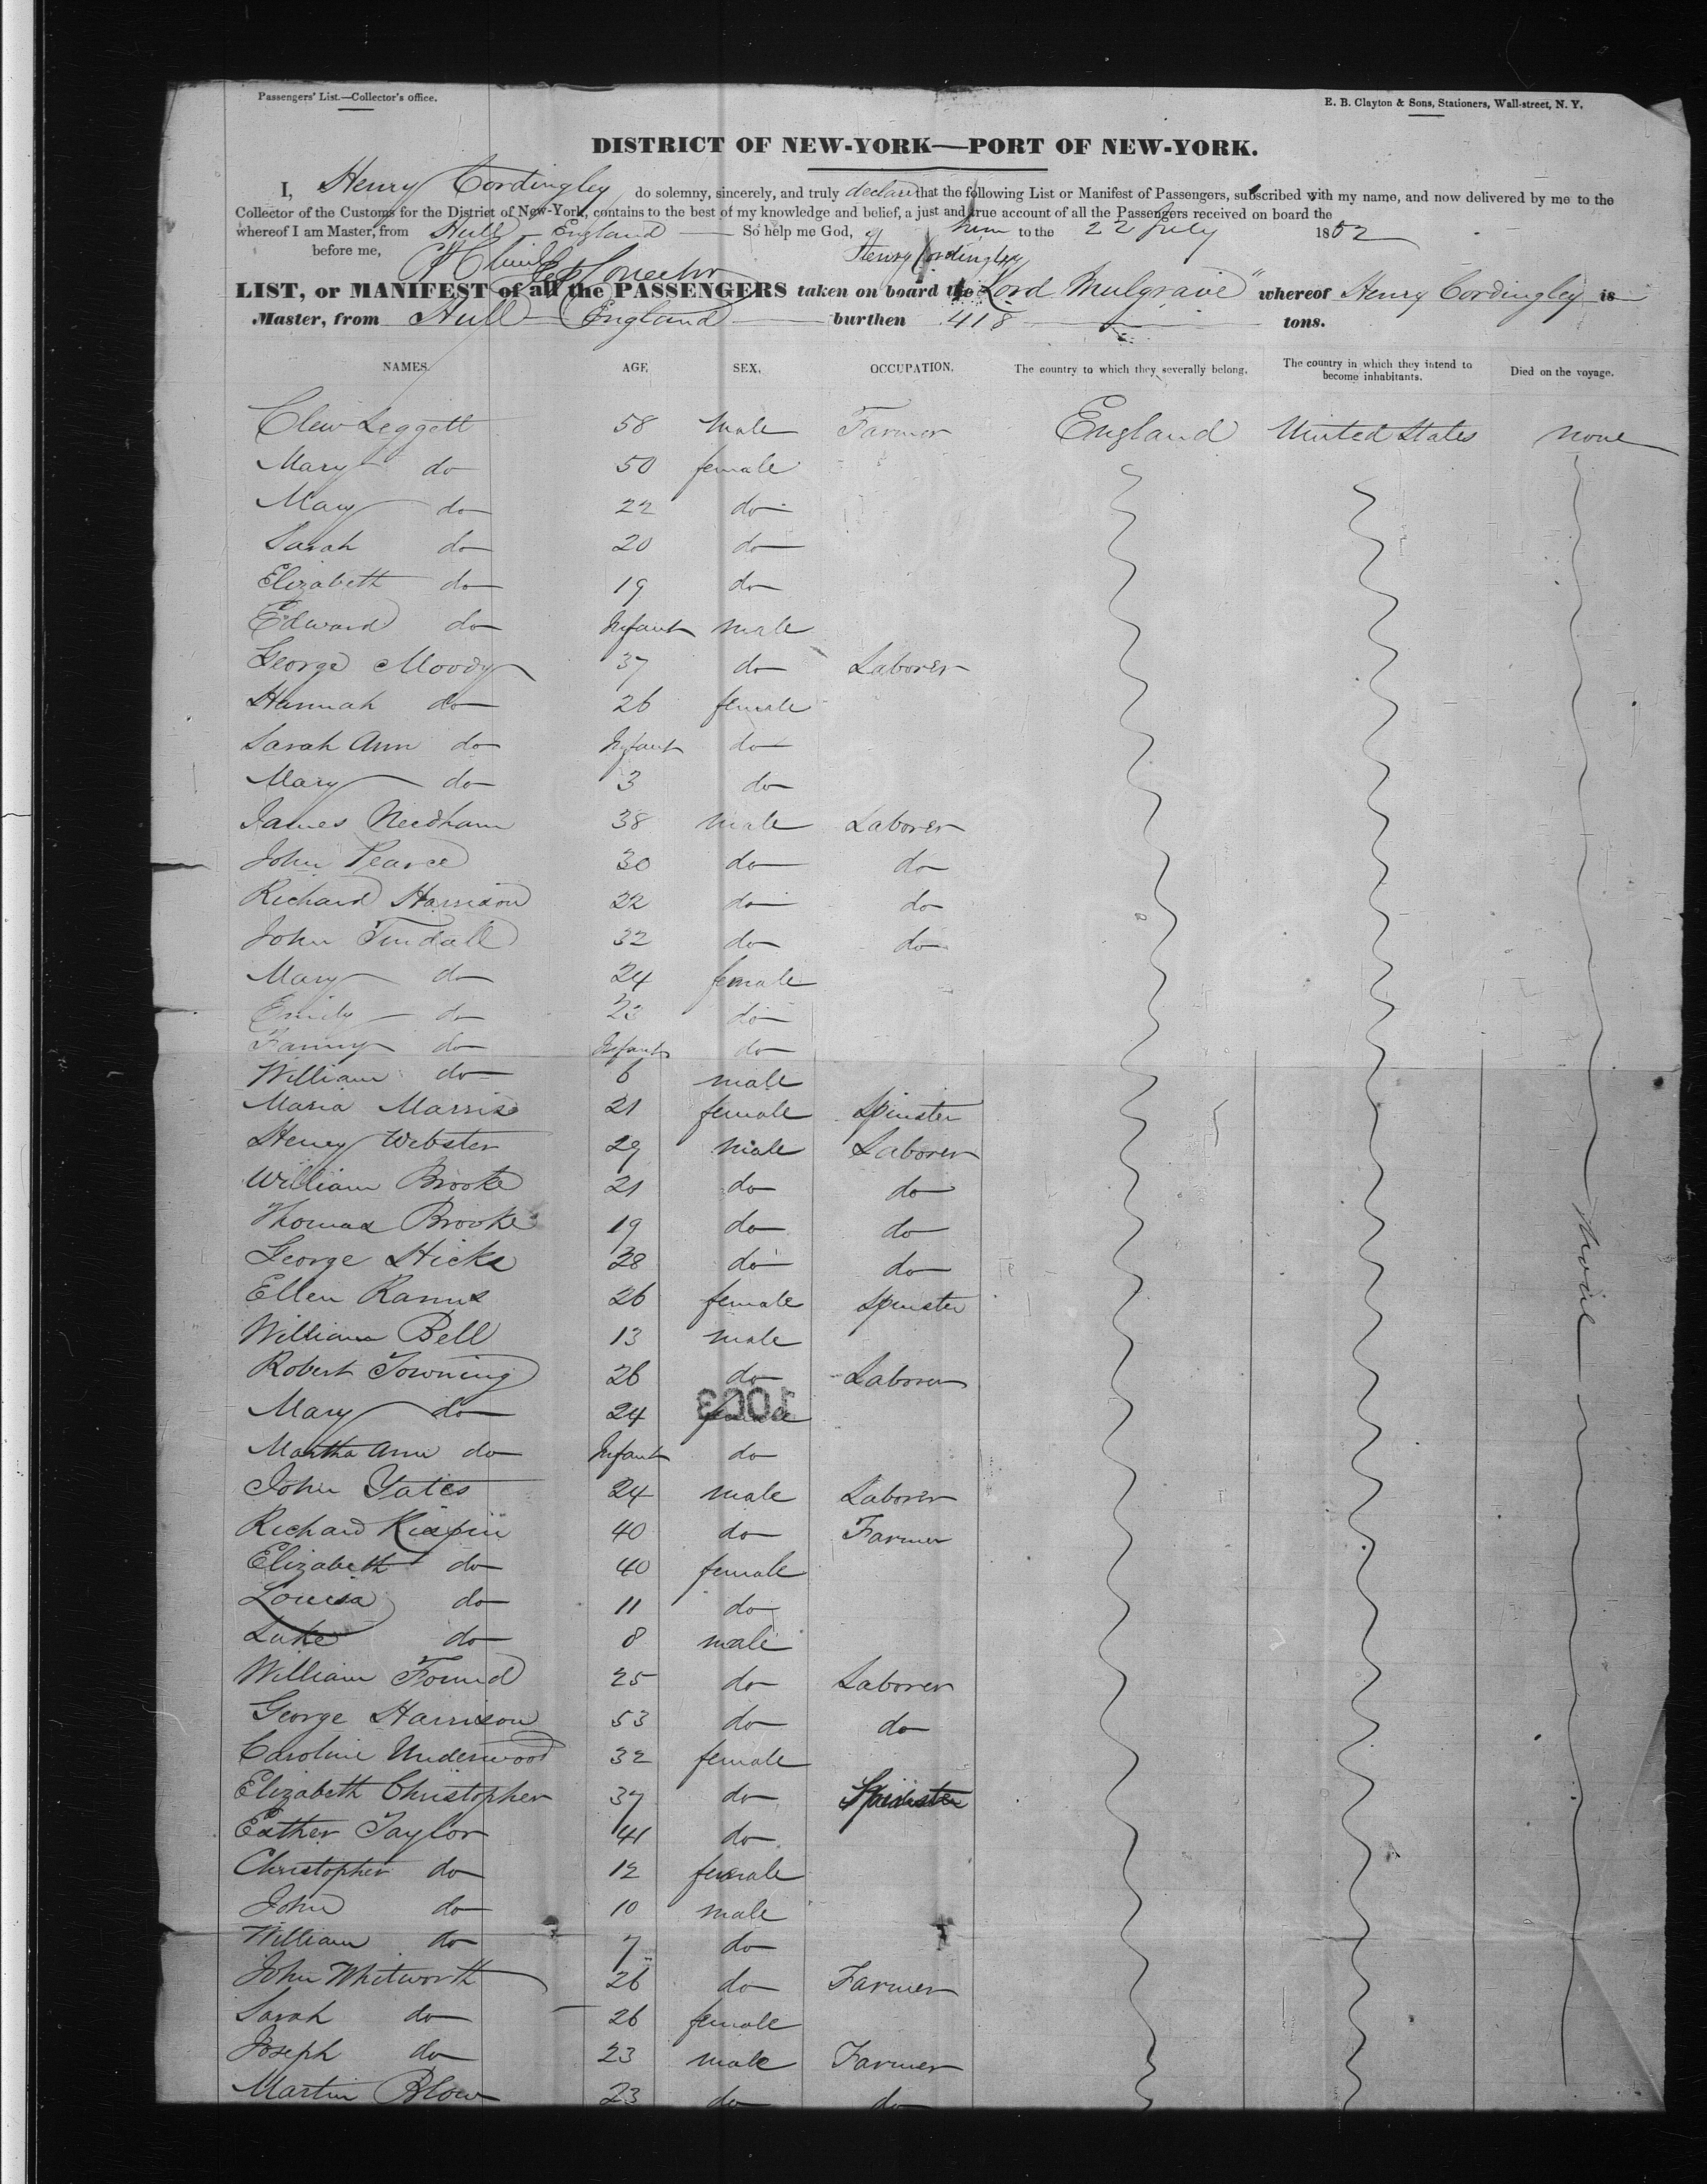 Passengers' List.—Collector's office.
E. B. Clayton & Sons, Stationers, Wall-street, N. Y.
DISTRICT OF NEW-YORK—PORT OF NEW-YORK.
I, Henry Cordingley do solemny, sincerely, and truly declare that the following List or Manifest of Passengers, subscribed with my name, and now delivered by me to the
Collector of the Customs for the District of New-York, contains to the best of my knowledge and belief, a just and true account of all the Passengers received on board the
whereof I am Master, from Hull - England So help me God, to the 22 July 1852
before me, Henry Cordingley
LIST, or MANIFEST of all the PASSENGERS taken on board the Lord Mulgrave" whereof Henry Cordingley is
Master, from Hull England burthen 418 tons.
NAMES. AGE. SEX. OCCUPATION. The country to which they severally belong. The country in which they intend to become inhabitants. Died on the voyage.
Clew Leggett 58 Male Farmer England United States none
Mary do 50 female
Mary do 22 do
Sarah do 20 do
Elizabeth do 19 do
Edward do Infant male
George Moody 37 do Laborer
Hannah do 26 female
Sarah Ann do Infant do
Mary do 3 do
James Needham 38 male Laborer
John Pearce 30 do do
Richard Harrison 22 do do
John Tindall 32 do do
Mary do 24 female
Emily do 23 do
Fanny do Infant do
William do 6 male
Maria Marris 21 female Spinster
Henry Webster 29 male Laborer
William Brooke 21 do do
Thomas Brooke 19 do do
George Hicks 28 do do
Ellen 26 female Spinster
William Bell 13 male
Robert Towning 26 do Laborer
Mary do 24 female
Martha Ann do Infant do
John Yates 24 male Laborer
Richard Kispin 40 do Farmer
Elizabeth do 40 female
Louisa do 11 do
Luke do 8 male
William Found 25 do Laborer
George Harrison 53 do do
Caroline Underwood 32 female
Elizabeth Christopher 37 do Spinster
Esther Taylor 41 do
Christopher do 12 female
John do 10 male
William do 7 do
John Whitworth 26 do Farmer
Sarah do 26 female
Joseph do 23 male Farmer
Martin Blow 23 do do
none